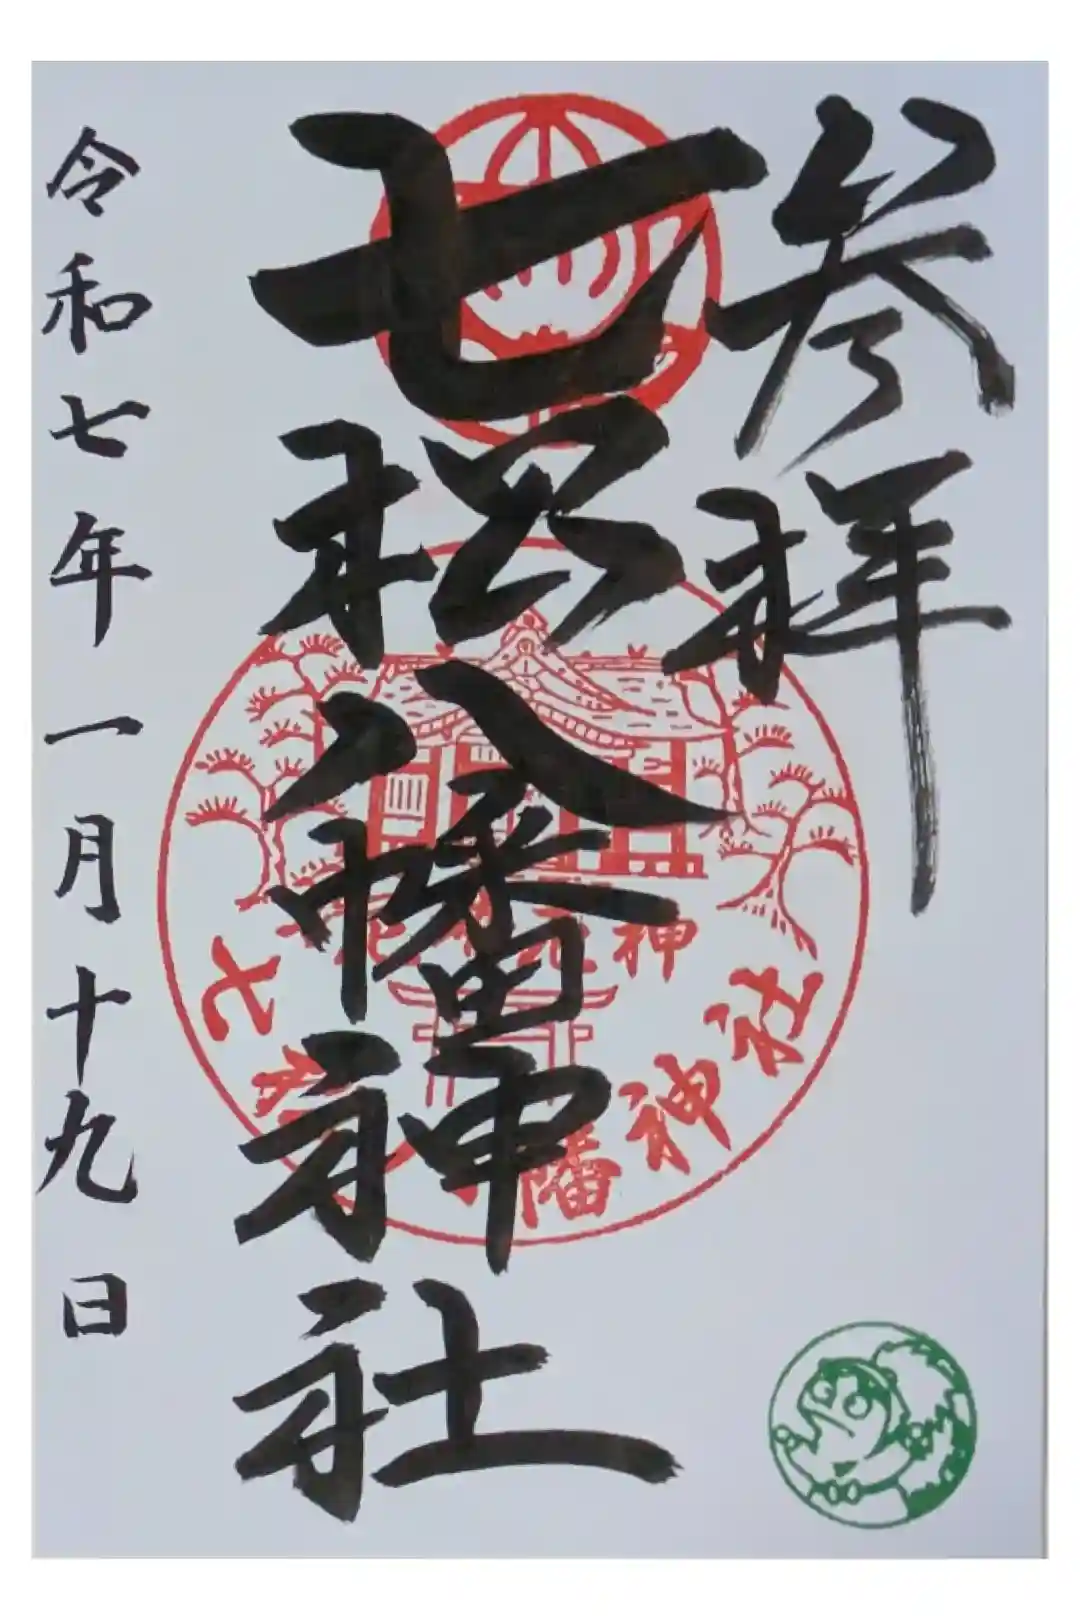 参拝
七松八幡神社
令和七年一月十九日
神
七松八幡神社